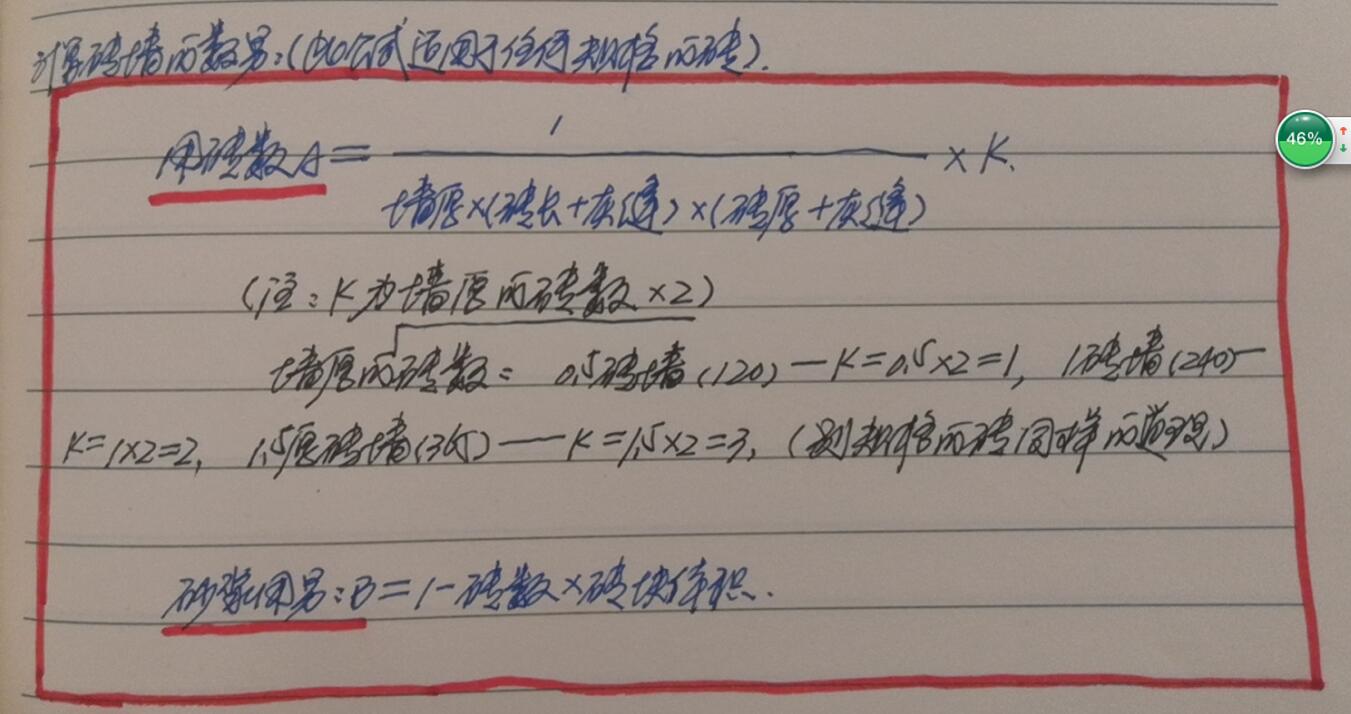 计算砖墙的数量:(此公式适用于任何规格的砖).
1
用砖数A= ———————— ×K.
墙厚×(砖长+灰缝)×(砖厚+灰缝)
(注:K为墙厚的砖数×2)
墙厚的砖数: 0.5砖墙(120)—K=0.5×2=1, 1砖墙(240)—
K=1×2=2, 1.5厚砖墙(365)——K=1.5×2=3, (别规格的砖同样的道理)
砂浆用量:B=1-砖数×砖块体积.
46%